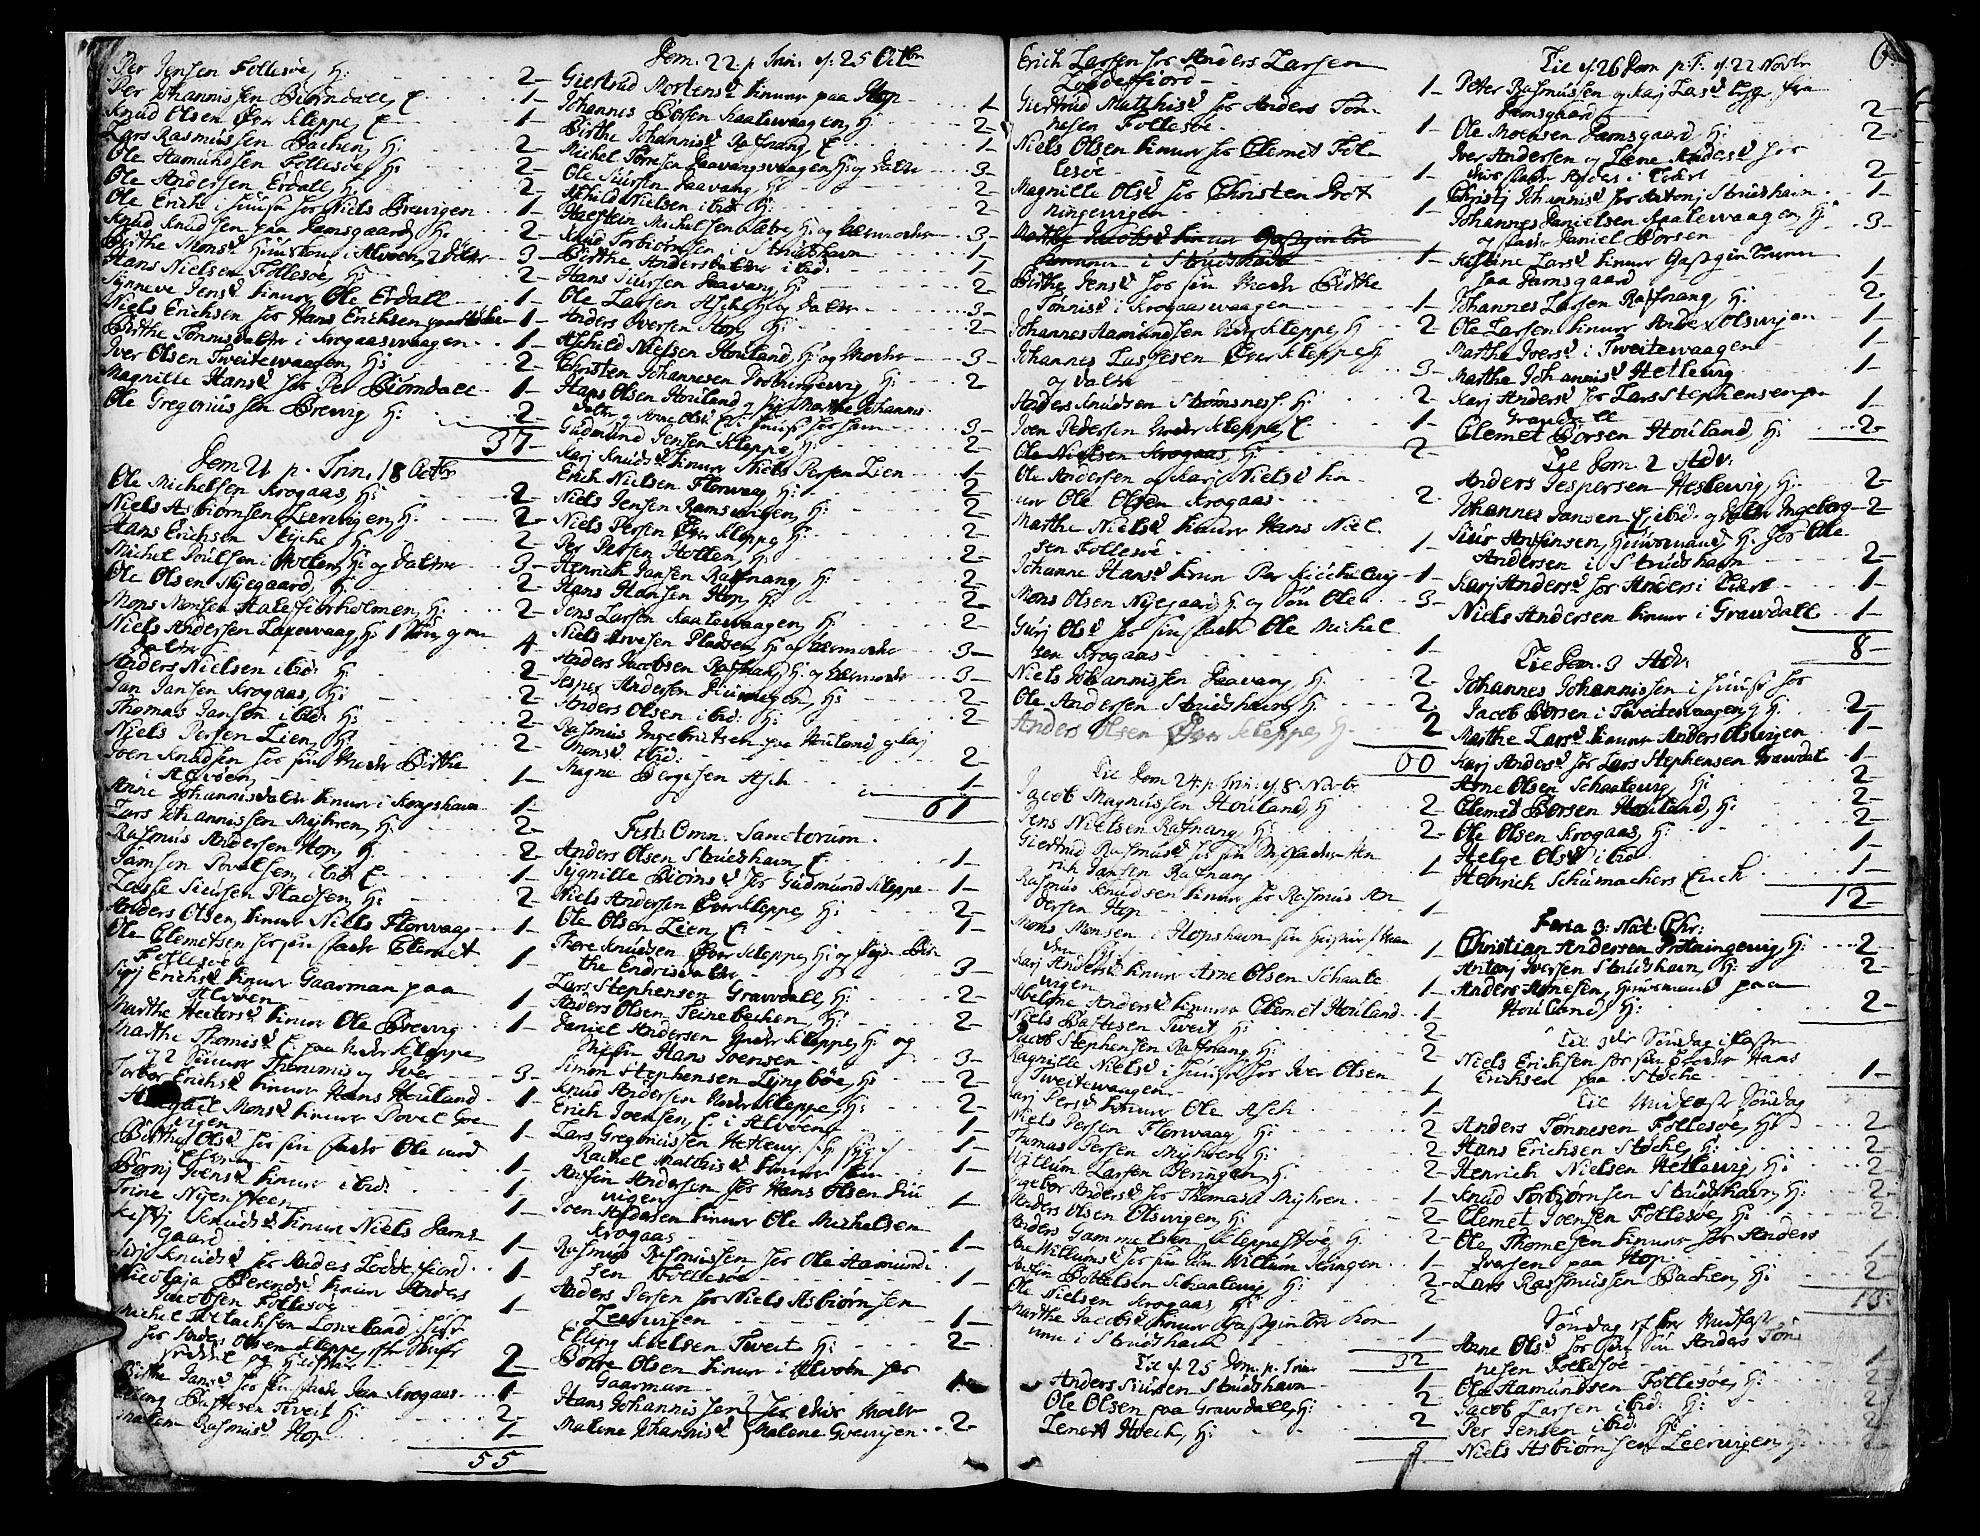 Per Jensen Follesøe, H: 2-
Per Johannissen Biørndall, E 1-
Knud Olsen Øvr Kleppe, E 1-
Lars Rasmussen Backen, H: 2-
Ole Aamundsen Follesøe, H: 2-
Ole Andersen Erdall, H: 2-
Ole Erichs i huuset for Niels Brevigen 1-
Knud Knudsen paa Damsgaard, H. 2-
Birthe Monsd i Alvøen, 2 døttr 3-
Hans Nielsen Follesøe, H: 2-
Synneve Jensd kinur Ole Erdall 1-
Niels Erichsen for Hans Erichsen 1-
Birthe Tønnisdatter i Krogaasvaagen 1-
Iver Olsen Tveitevaagen, H: 2-
Magnille Hansd for Per Biørndall 1-
Ole Gregoriussen Brevig H: 2-
37-
Dom 21 p. Trin. 18 Octbr
Ole Michelsen Krogaas, H: 2-
Niels Asbiørnsen Leervigen, H: 2-
Hans Erichsen Støche H. 2-
Michel Poulsen i Holten, H: og datter 3-
Ole Olsen Nyegaard, H. 2-
Mons Monsen H: 2-
Niels Andersen Laxevaag, H: 1 Søn, og en datter 4
Anders Nielsen ibid: H. 2-
Jan Jansen Krogaas, H: 2-
Thomas Jansen ibid: H: 2-
Niels Persen Lien, H: 2-
Joen Knudsen for sin Moder Birthe
i Alvøen 1-
Anne Johannisdatter kinur i Kongshavn 1-
Lars Johannissen Myhren, H: 2-
Rasmus Andersen Hop, H. 2-
Samson Povelsen, ibid E 1-
Lasse Siursen Pladsen, H: 2-
Anders Olsen kinur Niels Florvaag 1-
Ole Clemetsen for sin fader Clemet
Follesøe 1-
Siri Erichsd kinur Gaarman paa
Alvøen 1-
Marthe Heitorsd kinur Ole Brevig 1-
Marthe Thomisd E paa Neder Kleppe
og 2 Sønner Thommis og Iver 3-
Torbor Erichsd kinur Hans Houland 1-
Monsd kinur Povel
1-
Birthe Olsd for sin fader Ole
1-
Børni Joensd kinur ibid: 1-
Trine Nyensteen 1-
Knudsd kinur Niels Dams-
gaard 1-
Siri Knudsd for Anders Loddefiord 1-
Nicolaja Berendsd kinur Anders
Jacobsen Follesøe 1-
Michel Loneland
2
Birthe Jansd for sin fader Jan Krogaas 1-
Elling Bastesen Tveit H: 2-
Malene Rasmusd Hop 1-
55
Dom. 22. p Trin. d. 25 Octbr
Giertrud Mortensd kinur paa Hop 1
Johannes Børsen Kaalevaagen, H: 2-
Birthe Johannisd Rafnang E 1
Michel Tørresen Haavangsvaagen H: og datter 3-
Ole Siursen Haavang H: 2-
Aschild Nielsen ibid H: 2-
Haftein Michelsen H: og Værmoder 3-
Knud Torbiørnsen i Strudshavn 1-
Birthe Andersdatter ibid: 1-
Hans Siursen Haavang H: 2-
Ole Larsen Asch H: og datter 3-
Anders Iversen Hop, H: 2-
Aschild Nielsen Houland, H: og Moder 3-
Christen Johannesen Drotningevig, H: 2
Hans Olsen Houland og Marthe Johannis-
datter og Anne Olsd 3-
Gudmund Jensen Kleppe, H: 2-
Kari Knudsd kinur Niels Persen Lien 1-
Erich Nielsen Florvaag H: 2-
Niels Jensen Ramsvigen, H: 2-
Niels Persen Øvr Kleppe H: 2-
Per Persen Holten, H: 2-
Henrich Jansen Rafnang, H: 2-
Hans Hansen Hop, H: 2-
Jens Larsen Kaalevaagen, H: 2-
Niels Arvesen Pladsen, H: og Værmoder 3-
Anders Jacobsen Rafnang, H: og Værmoder 3-
Jesper Andersen H: 2-
Anders Olsen ibid: H: 2
Rasmus Ingebritsen paa Houland, og Kari
Monsd ibid: 2-
Magne Børgesen Asch 1-
61
Fest: Omn. Sanctorum.
Anders Olsen Strudshavn, E 1-
Sygnille Biørnsd for Gudmund Kleppe 1-
Niels Andersen Øvr Kleppe, H: 2-
Ole Olsen Lien, E: 1-
Thore Knudsen Øvr Kleppe, H: og Bir-
the Endrisdatter 3-
Lars Stephensen Gravdall, H: 2-
Anders Olsen Teinebechen, H: 2-
Daniel Andersen Neder Kleppe, H: og
Hans Ivensen 3-
Simon Stephensen Lyngbøe, H: 2-
Knud Andersen Neder Kleppe, H: 2-
Erich Joensen, E: i Alvøen 1-
Lars Gregoriussen Hetlevig
Rachel Mathisd kinur 1-
Ansin Andersen for Hans Olsen
vigen 1-
Joen Andersen kinur Ole Michelsen
Krogaas 1-
Rasmus Rasmussen for Ole Aamund-
sen Follesøe 1-
Anders Persen for Niels Asbiørnsen
Leervigen 1-
Elling Nielsen Tveit H: 2-
Børre Olsen kinur i Alvøen for
Gaarman 1-
Hans Johannissen } for deres Moder
Malene Johannisd } Malene 2-
Erich Larsen for Anders Larsen
Loddefiord 1-
Giertrud Matthisd for Anders Tøn-
nesen Follesøe 1-
Niels Olsen kinur for Clemet Fol-
lesøe 1-
Magnille Olsd for Christen Drot
ningevigen 1-
Marthe Jacobsd kinur Gastgiver
i Strudshavn 1-
Birthe Jensd for sin Moder Birthe
Tønnisd i Krogaasvaagen 1-
Johannes Aamundsen Neder Kleppe, H 2
Johannes Lassesen Øver Kleppe H
og datter 3-
Anders Knudsen Strømsnes H: 2
Joen Pedersen Neder Kleppe, E 1-
Ole Nielsen Krogaas, H: 2-
Ole Andersen og Kari Nielsd ki-
nur Ole Olsen Krogaas 2-
Marthe Nielsd kinur Hans Niel-
sen Follesøe 1-
Johanne Hansd kinur Per Kiøkelvig 1-
Mons Olsen Nyegaard, H. og Søn Ole 3-
Guri Olsd for sin fader Ole Michel
sen Krogaas 1-
Niels Johannissen Haavang H: 2-
Ole Andersen Strudshavn, H: 2-
Anders Olsen Øvr Kleppe, H. 2
60
Til Dom 24. p. Trin: d 8 Novbr.
Jacob Magnussen Houland, H 2-
Jens Nielsen Rafnang, H: 2-
Giertrud Rasmusd for sin Hen-
rich Jansen Rafnang 1-
Rasmus Knudsen kinur for Rasmus An-
dersen Hop 1-
Mons Monsen i Hopshavn
1-
Kari Andersd kinur Arne Olsen Schaale-
vigen 1-
Abelone Andersd kinur Clemet Houland 1-
Niels Bastesen Tveit H: 2-
Jacob Stephensen Rafnang H: 2-
Magnille Nielsd i huuset for Iver Olsen
Tveitevaagen 1-
Kari Persd kinur Ole Asch 1-
Niels Persen Florvaag H: 2-
Thomas Persen Myhren, H: 2-
Willum Larsen Beringen, H. 2-
Ingebor Andersd for Thomas Myhren 1-
Anders Olsen Olsvigen, H: 2-
Anders Gammelsen Kleppestøe H: 2-
Ane Willumsd for sin Willum 1-
Ansin Bottelsen Schaalevig H: 2-
Ole Nielsen Krogaas H: 2-
Marthe Jacobsd kinur Gastgiver kon-
nen i Strudshavn 1-
32
Til d. 25 Dom. p. Trin
Anders Siursen Strudshavn 1
Ole Olsen paa Gravdall, H: 2
Lenert Hveck, H: 2
9
Til d. 26 Dom p. T. d. 22 Novbr 6
Peter Rasmussen og Kari Lasd
Damsgaard 2-
Ole Moensen Damsgaard, H: 2-
Iver Andersen og Lene Andersd for
2-
Christi Johannisd for Antoni Strudshavn 1-
Johannes Danielsen Kaalevaagen, H:
og fader Daniel Børsen 3-
Kirstine Larsd kinur Gastgiver
paa Damsgaard 1-
Johannes Larsen Rafnang, H: 2-
Ole Larsen kinur Anders Olsvigen 1-
Marthe Iversd i Tveitevaagen 1-
Marthe Johannisd Hetlevig 1-
Kari Andersd for Lars Stephensen paa
Gravdall 1-
Clemet Børsen Houland, H: 2-
Til Dom. 2 Adv:
Anders Jespersen Hestevig, H: 2-
Johannes Jansen E, ibid. og datter Ingeborg 2
Siur Ansinsen, Huusmand, H. for Ole
Andersen i Strudshavn 2-
Kari Andersd for Anders i 1-
Niels Andersen kinur i Gravdall 1-
8-
Til Dom. 3 Adv:
Johannes Johannissen i huuset for
Jacob Børsen i Tveitevaagen, H 2-
Marthe Larsd kinur Anders Olsvigen 1-
Kari Andersd for Lars Stephensen Gravdal 1-
Arne Olsen Schaalevig H: 2-
Clemet Børsen Houland, H: 2-
Ole Olsen Krogaas, H: 2
Helge Olsd ibid 1-
Henrich Schumachers Enck 1-
12-
Feria 3. Nat. Chr:
Christian Andersen Drotningevig H: 2-
Antoni Iversen Strudshavn, H: 2-
Anders Arnesen, Huusmand paa
Houland, H: 2-
Til 3de Søndag i Faste
Niels Erichsen for sin broder Hans
Erichsen paa Støche 1-
Til Midfaste Søndag
Anders Tønnesen Follesøe, H: 2-
Hans Erichsen Støche, H: 2-
Henrich Nielsen Hetlevig, H: 2-
Knud Torbiørnsen Strudshavn, H: 2-
Clemet Joensen Follesøe, H: 2-
Ole Thomesen kinur for Anders
Ivarsen paa Hop 1-
Lars Rasmussen Bachen, H: 2-
13:
Søndag efter Midfaste
Anne Olsd for sin Søn Anders Tøn
nesen Follesøe 1-
Ole Aamundsen Follesøe, H: 2-
Jacob Larsen ibid: H: 2-
Per Jensen ibid: H: 2
Niels Asbiørnsen Leervigen, H: 2-